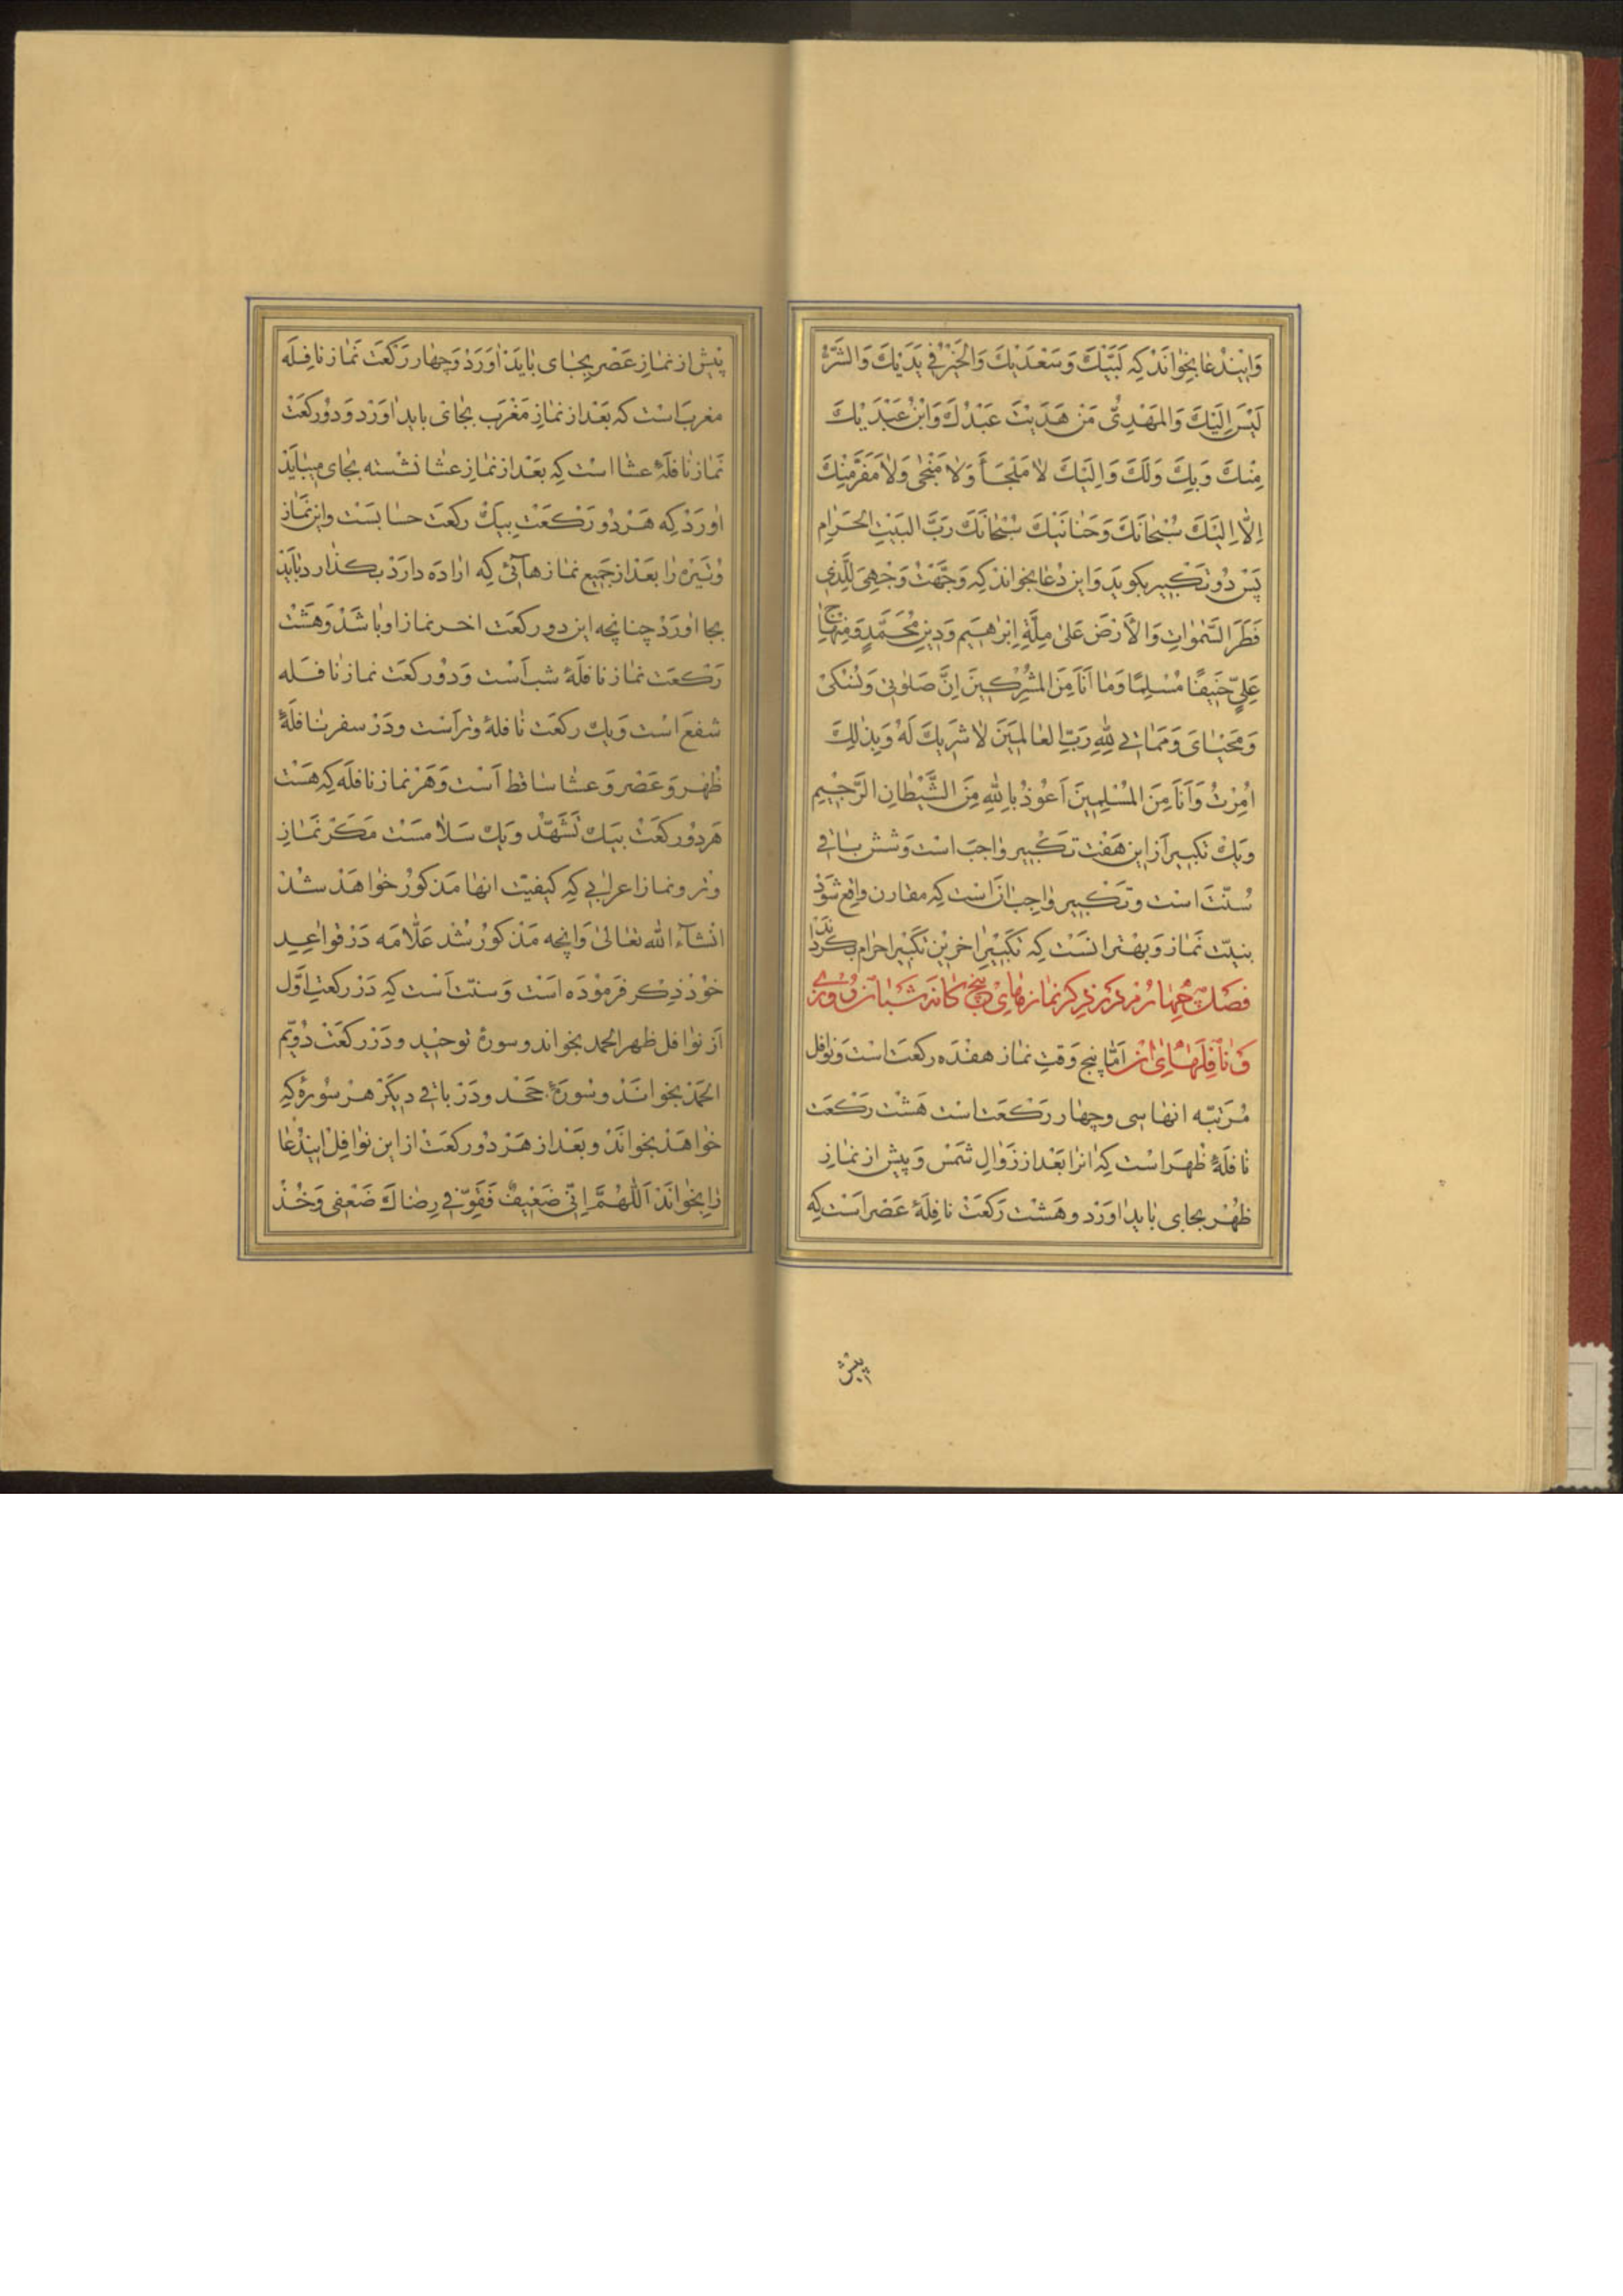 وَاینِدُعا بِخِوٰانَدْ کِه لَبَّیْكَ وَسَعْدَیْكَ وَالْخَیْرُ فی یَدَیْكَ وَالشَّرُّ
لَیْسَ اِلَیْكَ وَالْمَهْدِیُّ مَنْ هَدَیْتَ عَبْدُكَ وَابْنُ عَبْدَیْكَ
مِنْكَ وَبِكَ وَلَكَ وَاِلَیْكَ لا مَلْجَأَ وَلا مَنْجٰی وَلا مَفَرَّ مِنْكَ
اِلّا اِلَیْكَ سُبْحانَكَ وَحَنانَیْكَ سُبْحانَكَ رَبَّ الْبَیْتِ الْحَرٰامِ
پَسْ دُو تَکْبیر بکوید وَاین دُعا بخوانَدْ که وَجَّهْتُ وَجْهِیَ لِلَّذی
فَطَرَ السَّمٰوٰاتِ وَالْأَرْضَ عَلیٰ مِلَّةِ اِبْرٰهیمَ وَدینِ مُحَمَّدٍ وَمِنْهاجِ
عَلِیٍّ حَنیفًا مُسْلِمًا وَما اَنَا مِنَ الْمُشْرِکینَ اِنَّ صَلوٰتی وَنُسُکی
وَمَحْیٰایَ وَمَمٰاتی لِلّٰهِ رَبِّ الْعٰالَمینَ لا شَریكَ لَهُ وَبِذٰلِكَ
اُمِرْتُ وَاَنَا مِنَ الْمُسْلِمینَ اَعُوذُ بِاللّٰهِ مِنَ الشَّیْطٰانِ الرَّجیمِ
ویك تکبیر از این هَفْت تکْبیر وٰاجبَ است وَشش بٰاقی
سُنّت است وتَکْبیر وٰاجب اٰن است که مقارن واقع شَوَدْ
بنیّت نَماز وَبهْتر اٰنست که تکبیر اخرین تکبیر احرام بکردٰانَد
فصل چهارم در ذکر نمازهای پنج کانه شبانروزی
وَنافِلَهایِ ان اَمّا پنج وَقت نماز هفدَه رکعَت است وَنوٰافل
مُرَتبّه انها سی وچهار رَکْعَت است هَشْت رَکْعَت
نافلَهٔ ظهر است که اٰنرا بَعْد از زَوٰالِ شَمْس وَپیش از نَمٰازِ
ظهْر بجای بٰاید اٰورد وهَشْت رَکعَتْ نافِلَهٔ عَصْر اَست که
پیش
پیش از نمازِ عَصْر بجای بٰایَد اٰوَردْ وَچهار رَکعَت نَماز نافِلَه
مغرب است که بَعْد از نمٰازِ مَغْرَب بجٰای باید اٰوَرْد وَدورکعَت
نَماز نافلَهٔ عشا است که بَعْد از نَمازِ عشا نشسته بجٰای میبٰایَدْ
اٰورَدْ که هَر دو رَکْعَت بیك رکعَت حساب است واین نَماز
وُتَیْرَه را بَعْد از جَمیع نمازهائی که ارٰادَه دارَدْ بکذارد بٰایَد
بجا اٰورَدْ چنانچه این دو رکعَت اخر نماز او باشَدْ وَهَشْت
رَکْعَت نماز نافلَهٔ شب اَست وَدُو رکعَت نماز نافلَه
شفع اَست ویك رکعَت نافلهٔ وتر اَست ودَر سفر نافلَهٔ
ظهْر وَعَصْر وَعشا ساقط اَست وَهَرْ نماز نافلَه که هَسْت
هَر دُو رکعَتْ بیك تشَهّد ویك سَلام است مَکَرْ نَمازِ
وتر ونماز اعرابی که کیفیّت انها مَذکور خواهَد شُدْ
انْشآءَ الله تعٰالیٰ وَانچه مَذکور شُد عَلّامَه دَرْ قواعِد
خوْد ذِکر فرمُودَه اسْت وَسنّت اَست که دَرْ رکعَتِ اَوَّل
اَز نَوٰافل ظهر الحمد بخواند وسورهٔ توحید ودَرْ رکعَتْ دُویّم
الحَمْد بخوانَدْ وسورَهٔ جَحْد ودَرْ باقی دیکَرْ هَرْ سُورهٔ که
خواهَدْ بخوانَدْ وبَعْد از هَر دُو رکعَتْ از این نوٰافِل ایندُعٰا
رٰا بخوٰانَدْ اَللّٰهُمَّ اِنّی ضَعیفٌ فَقَوِّ فی رِضٰاكَ ضَعْفی وَخُذْ